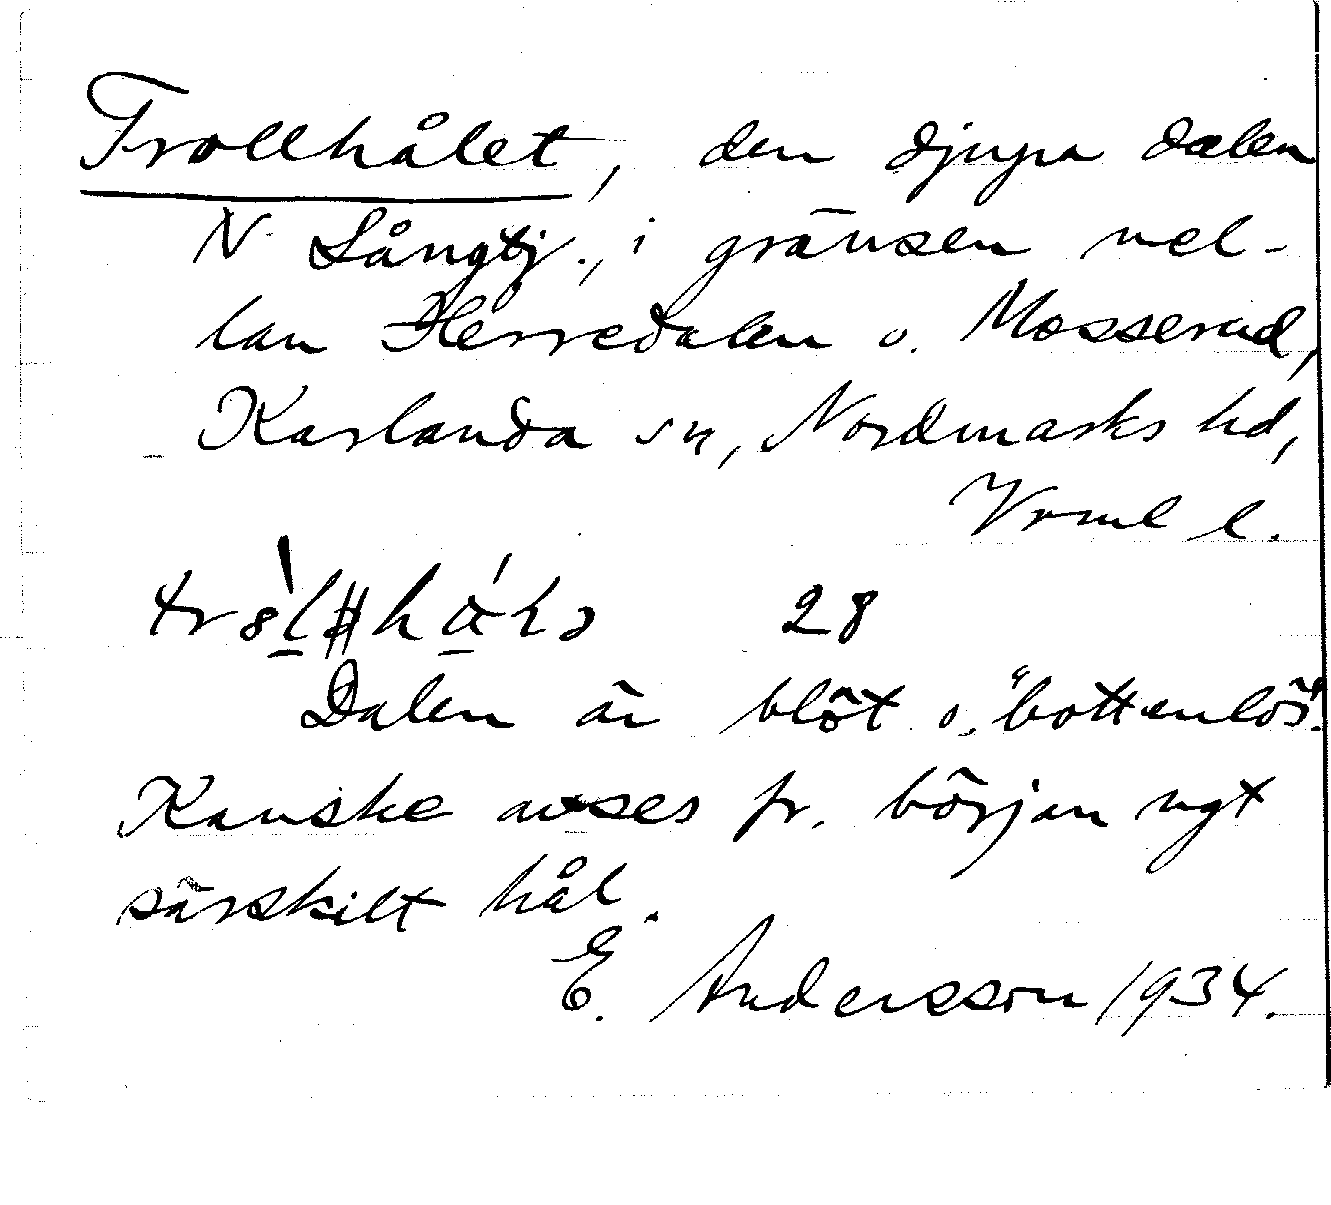 Trollhålet, den djupa dalen
N Långtj., i gränsen mel-
lan Herredalen o. Mosserud,
Karlanda sn, Nordmarks hd,
Vrml l.
28
Dalen är blöt o. "bottenlös".
Kanske avses fr. början ngt
särskilt hål.
E. Andersson 1934.